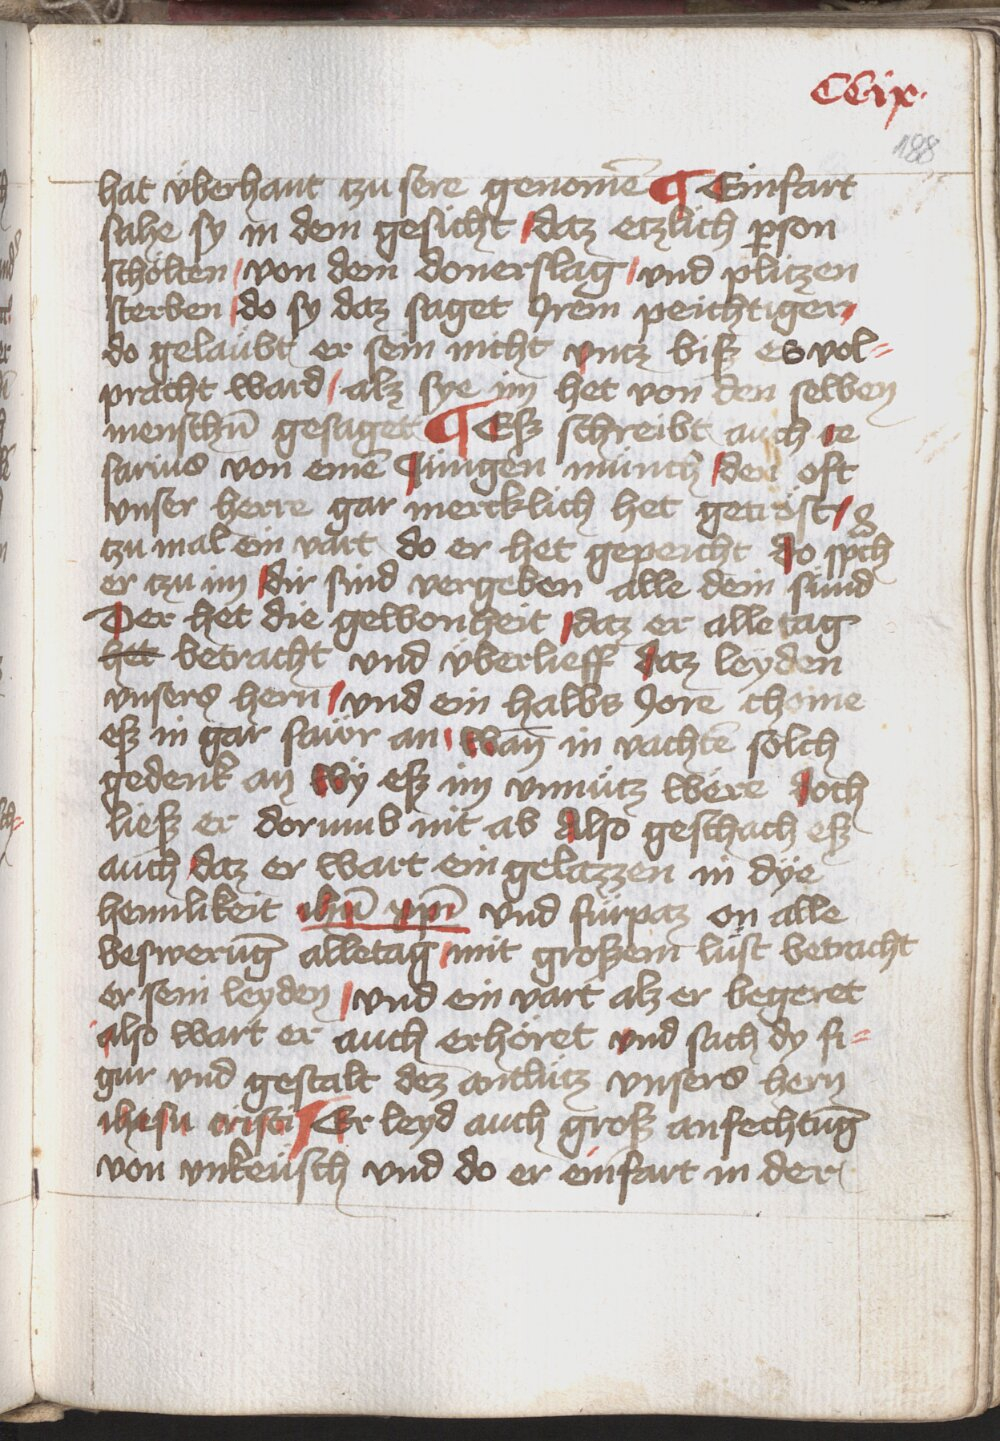 CCix.
188
hat vberhant czu sere genomē ¶ Einfart
sahe sy in dem gesicht / daz etzlich ꝑson
schölten / von dem donerslag / vnd plitzen
sterben / do sy daz saget Jrem peichtiger /
do gelaubt er sein nicht vntz biß es vol-
pracht ward / alz sye im het von den selben
menschn̄ gesaget ¶ Eß schreibt auch ce
sarius von einē Jungen münch / der oft
vnser herre gar mercklich het getröst /
czu mal ein vart do er het gepeicht do spͣch
er czu im / dir sind vergeben alle dein sünd
Der het die gewonheit / daz er alletag
het betracht vnd vberlieff daz leyden
vnsers hern / vnd ein halbs Jore chome
eß in gar sawr an / wan̄ in vachtē solch
gedenk an wÿ eß im vnnütz were doch
ließ er dorumb nit ab Also geschach eß
auch daz er wart ein gelazzen in dÿe
heimlikeit ihū xpī vnd fürpaz on alle
beswerūg alletag / mit großem lüst betracht
er sein leyden / vnd ein vart alz er begeret
also wart er auch erhöret vnd sach dy fi-
gur vnd gestalt dez antlütz vnsers hern
ihesu cristi ¶ Er leyd auch groß anfechtūg
von vnkeüsch vnd do er einfart in der